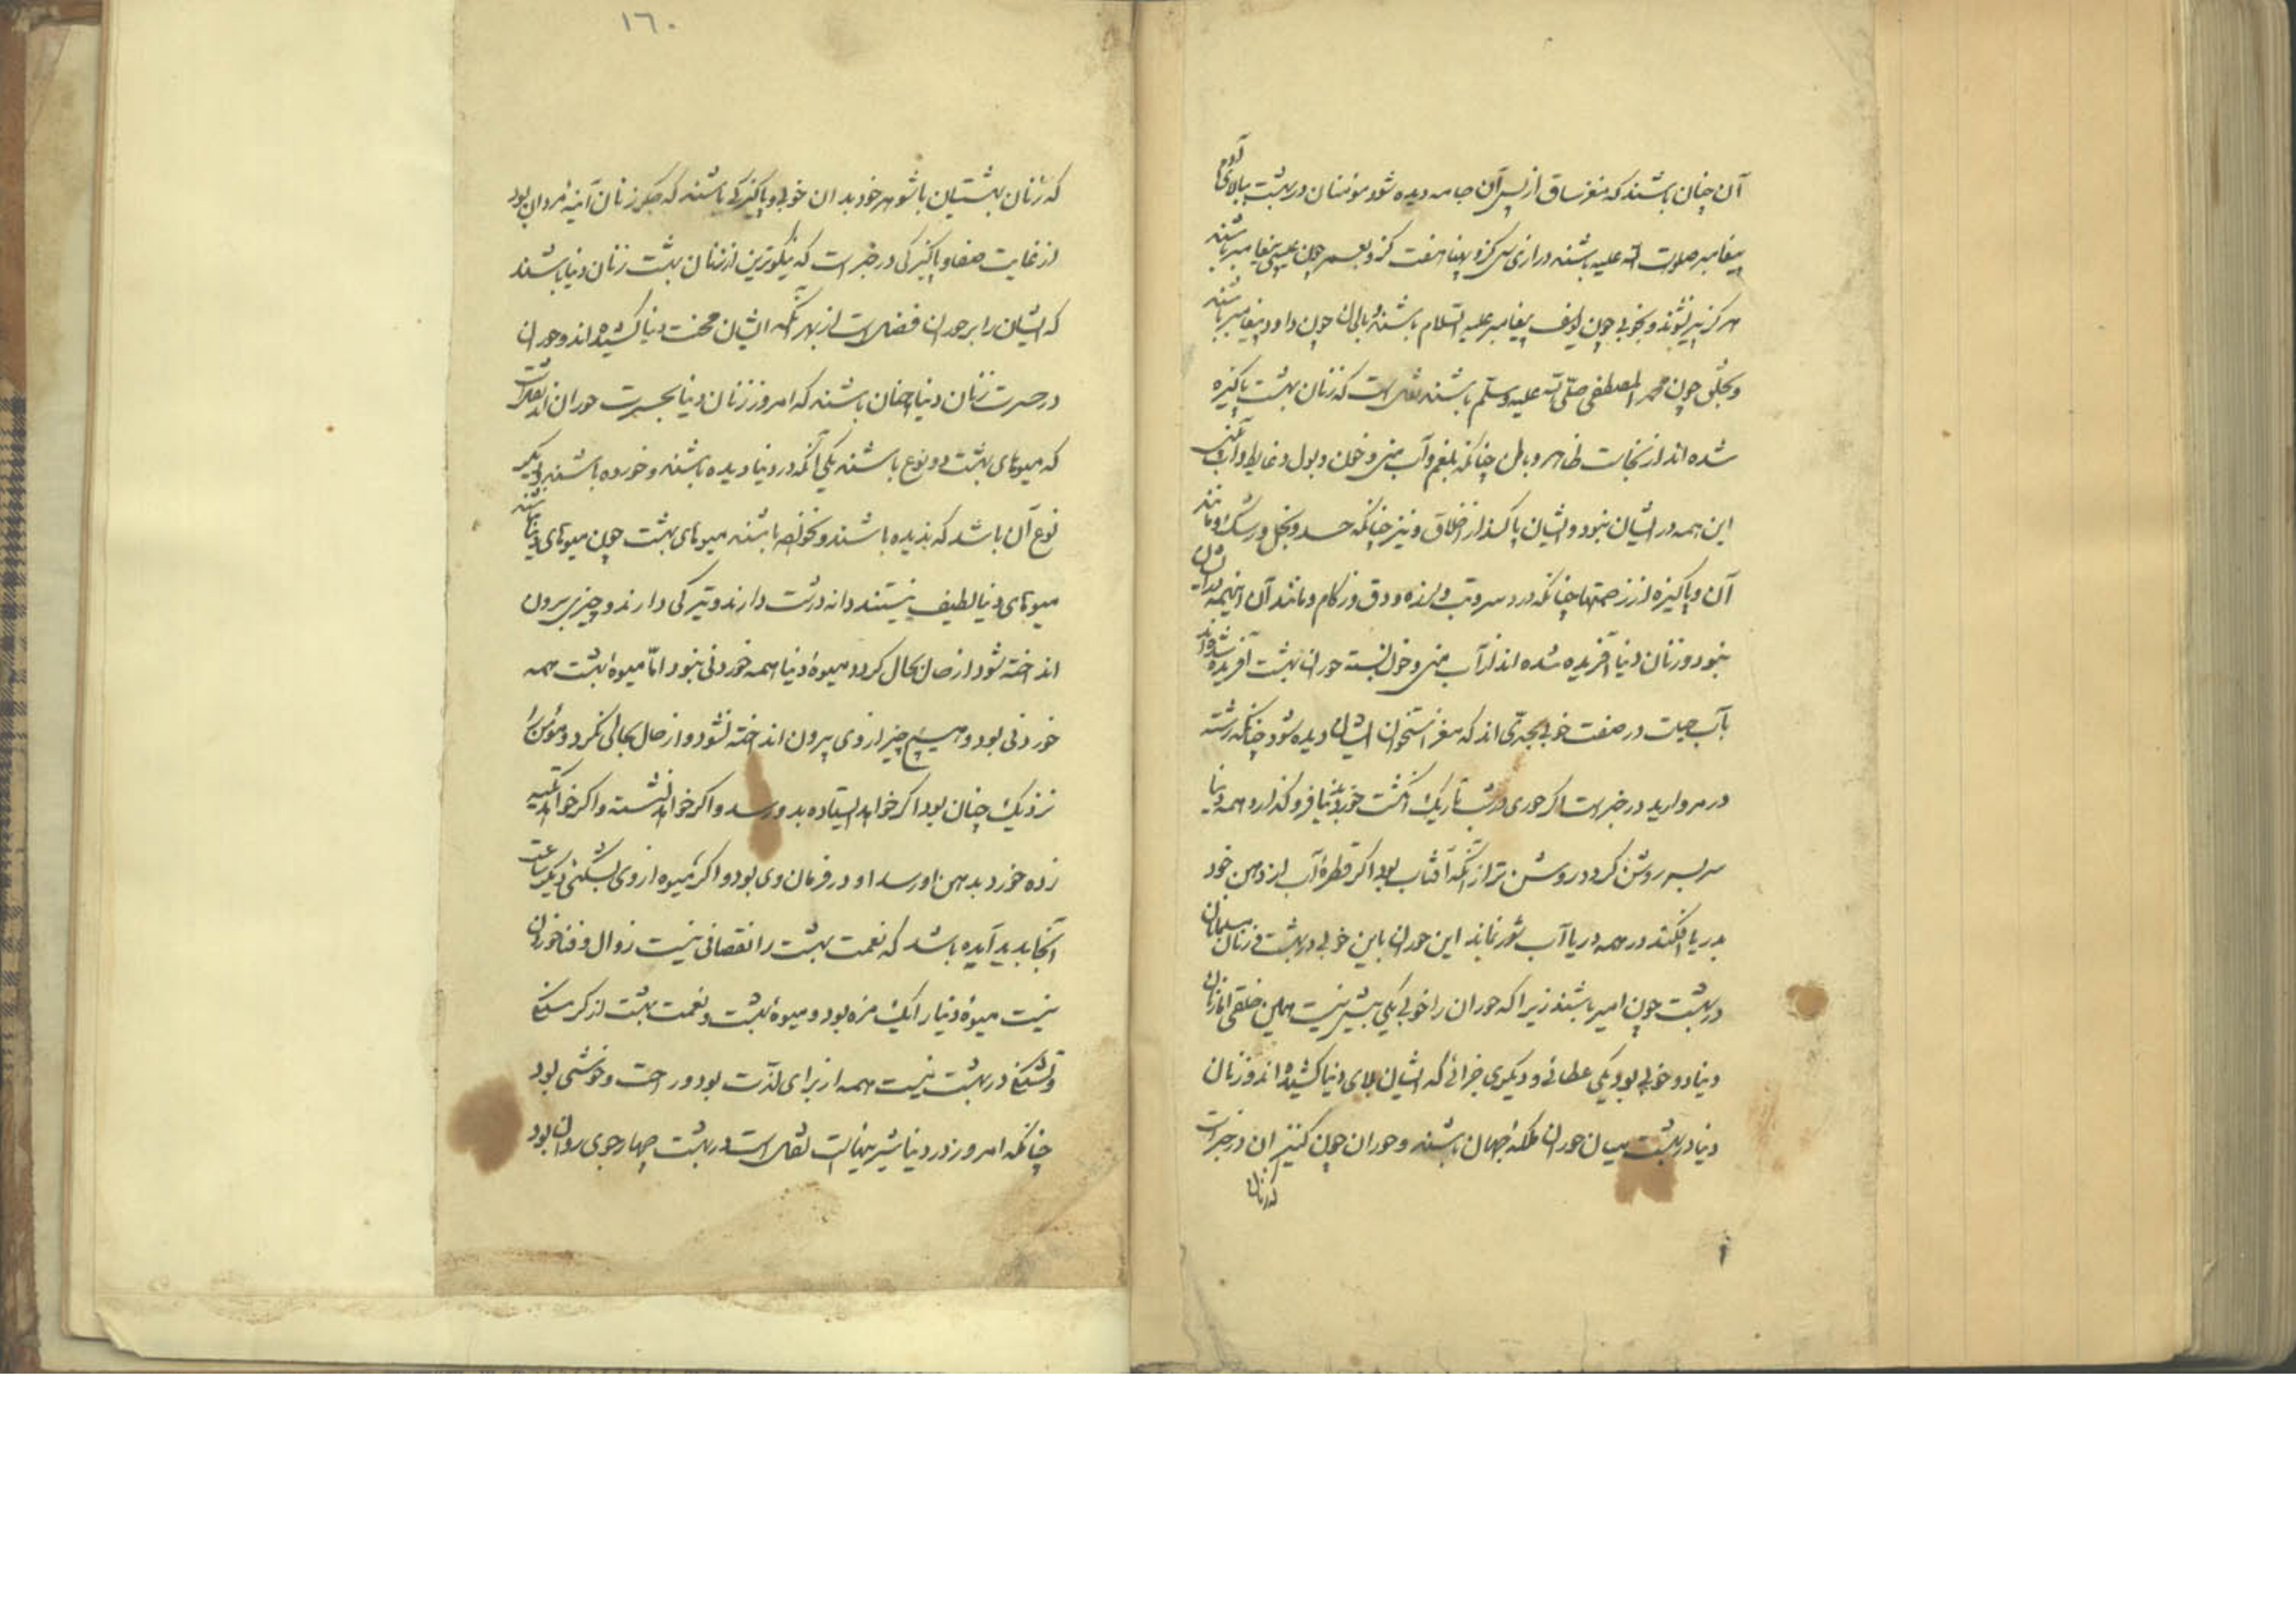 آن چنان باشند که مغز ساق از پس آن جامه دیده شود مؤمنان در بهشت ببالای آدم
پیغامبر صلوات الله علیه باشند درازی سی گز و پهنا هفت گز و بعمر چون عیسی پیغامبر باشند
هرگز پیر نشوند و بخوبی چون یوسف پیغامبر علیه السلام باشند و بالحان چون داود پیغامبر باشند
و بخلق چون محمد المصطفی صلی الله علیه وسلم باشند نقل است که زنان بهشت پاکیزه
شده اند از نجاست ظاهر و باطن چنانکه بلغم و آب منی و خون و بول و غایط و آب بینی
این همه در ایشان نبود و ایشان پاکند از اخلاق و نیز چنانکه حسد و بخل و رشک و مانند
آن و پاکیزه از زحمتها چنانکه درد سر و تب و لرزه و دق و زکام و مانند آن اینهمه در ایشان
نبود و زنان دنیا آفریده شده اند از آب منی و خون بسته حوران بهشت آفریده شده اند
بآب حیات در صفت خوبی بحدی اند که مغز استخوان ایشان دیده شود چنانکه رشته
در مروارید در خبر است اگر حوری در شب تاریک انگشت خود بدنیا فرو گذارد همه دنیا
سر بسر روشن گردد روشن تر از آنکه آفتاب بود اگر قطرهٔ آب از دهن خود
بدریا افکند در همه دریا آب شور نماند این حوران باین خوبی در بهشت زنان مسلمانان
در بهشت چون امیر باشند زیرا که حوران را خوبی یکی بیش نیست همین خلقی اما زنان
دنیا دو خوبی بود یکی عطائی و دیگری جزائی که ایشان بلای دنیا کشیده اند و زنان
دنیا در بهشت میان حوران ملکهٔ جهان باشند و حوران چون کنیزان در خبر است
که زنان
١٦٠
که زنان بهشتیان با شوهر خود بدان خوبی و پاکیزگی باشند که جگر زنان آئینه مردان بود
از غایت صفا و پاکیزگی در خبر است که نیکوترین از زنان بهشت زنان دنیا باشند
که ایشان را بر حوران فضل است از بهر آنکه ایشان محنت دنیا کشیده اند و حوران
در حسرت زنان دنیا چنان باشند که امروز زنان دنیا بحسرت حوران اند نقل است
که میوهای بهشت دو نوع باشند یکی آنکه در دنیا دیده باشند و خورده باشند و دیگر
نوع آن باشد که ندیده باشند و نخورده باشند میوهای بهشت چون میوهای دنیا نباشند
میوهای دنیا لطیف نیستند دانه درشت دارند و تیرگی دارند و چیزی برون
انداخته شود از حال بحال گردد میوهٔ دنیا همه خوردنی نبود اما میوهٔ بهشت همه
خوردنی بود و هیچ چیز از وی بیرون انداخته نشود و از حال بحالی نگردد و مؤمن را
نزدیک چنان بود اگر خواهد ایستاده بدو رسد و اگر خواهد نشسته و اگر خواهد تکیه
زده خورد بدهن او رسد او در فرمان وی بود و اگر میوه از وی بشکنی دیگر ساعت
آنجا پدید آیده باشد که نعمت بهشت را نقصانی نیست زوال و فنا خود آن
نیست میوهٔ دنیا را یک مزه بود و میوهٔ بهشت و نعمت بهشت از گرسنگی
و تشنگی در بهشت نیست همه از برای لذت بود و راحت و خوشی بود
چنانکه امروز در دنیا شیرینیهاست نقل است در بهشت چهار جوی روان بود